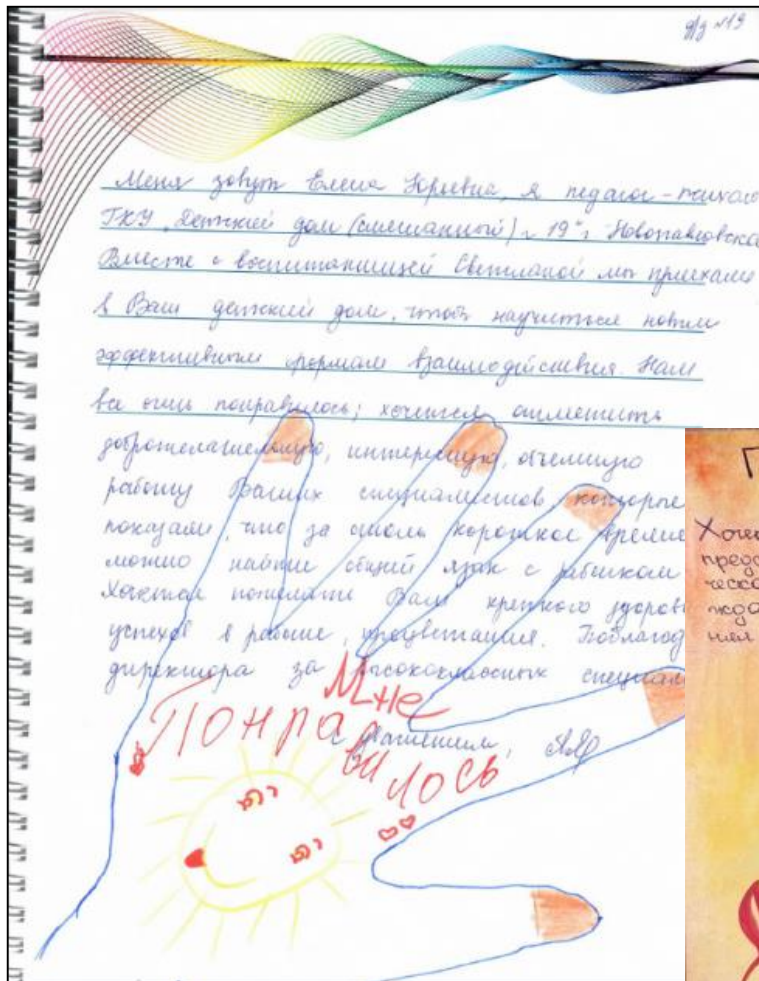 д/д №19
Меня зовут Елена Юрьевна, я педагог-психоло
ГКУ "Детский дом (смешанный) №19" г. Новопавловска
Вместе с воспитанницей Светланой мы приехали
в Ваш детский дом, чтоб научиться новым
эффективным формам взаимодействия. Нам
все очень понравилось; хочется отметить
доброжелательную, интересную, отличную
работу Ваших специалистов, которые
показали, что за столь короткое время
можно найти общий язык с ребенком
Хочется пожелать Вам крепкого здоровь
успехов в работе, процветания. Поблагод
директора за высококлассных специали
С уважением,
Мне
Понра
вилось
П
Хочет
предс
ческо
жда
ния